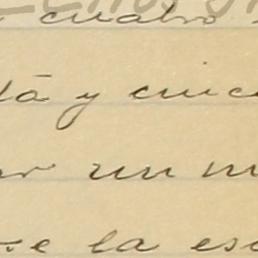 cuatro
tá y cinc
ar un m
se la es